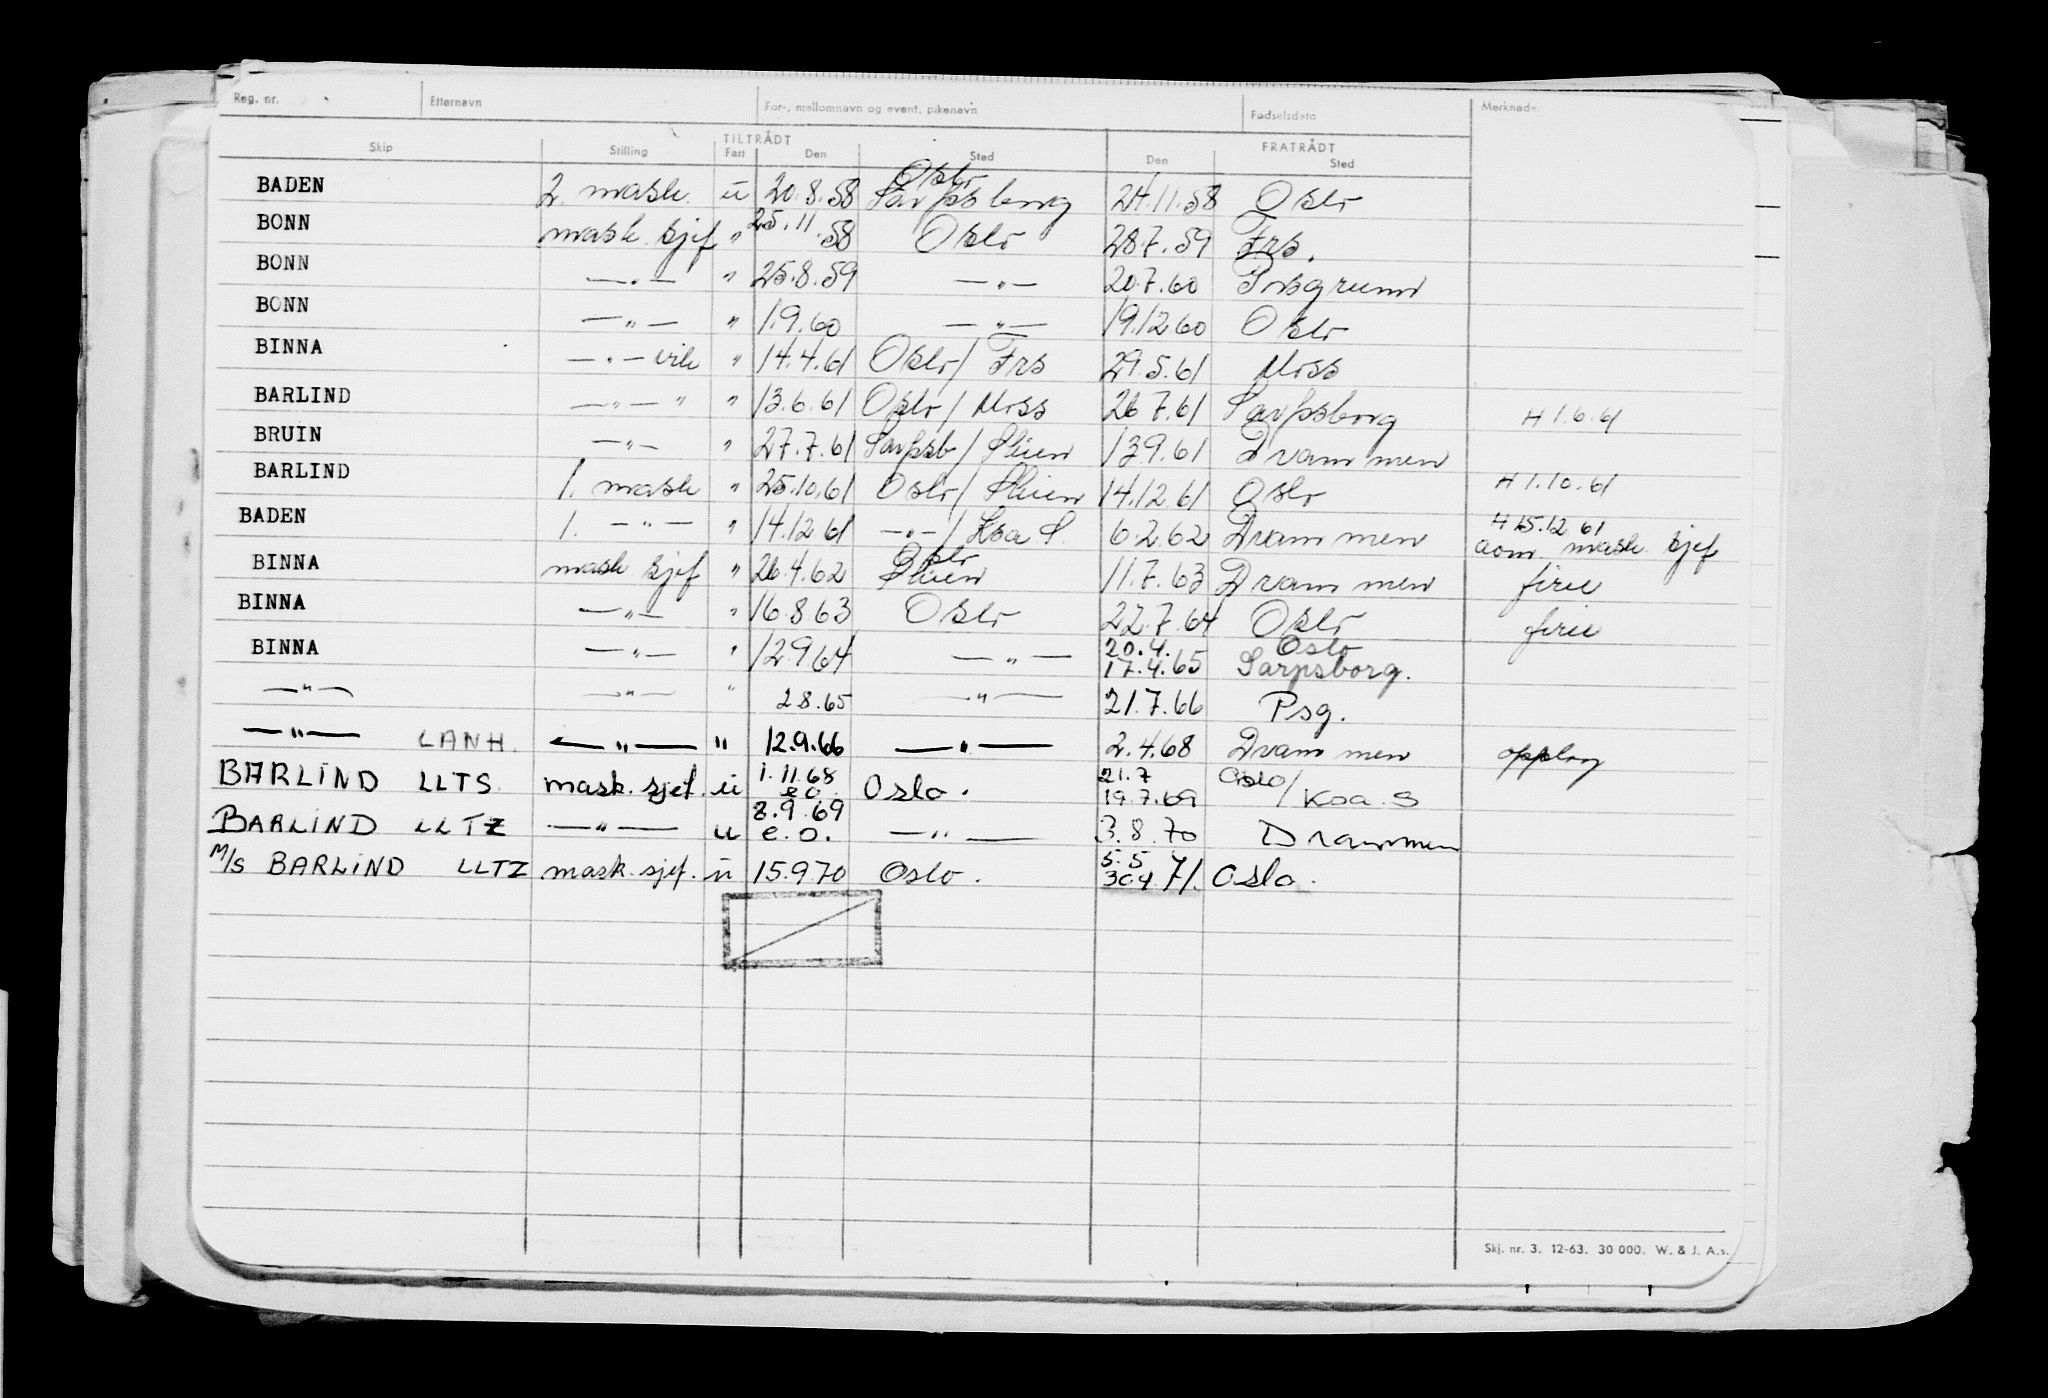 Reg. nr. Etternavn For-, mellomnavn og event. pikenavn Fødselsdato Merknader
TILTRÅDT FRATRÅDT
Skip Stilling Fart Den Sted Den Sted
BADEN 2. mask. u 20.8.58 Oslo Sarpsborg 24.11.58 Oslo
BONN mask. sjef " 25.11.58 Oslo 28.7.59 Frs.
BONN —"— " 25.8.59 —"— 20.7.60 Porsgrunn
BONN —"— " 1.9.60 —"— 19.12.60 Oslo
BINNA —"— vik " 14.4.61 Oslo/Frs 29.5.61 Moss
BARLIND —"— " " 13.6.61 Oslo/Moss 26.7.61 Sarpsborg H 1.6.61
BRUIN —"— " 27.7.61 Sarpsb/Skien 13.9.61 Drammen
BARLIND 1. mask " 25.10.61 Oslo/Skien 14.12.61 Oslo H 1.10.61
BADEN 1. —"— " 14.12.61 —"—/Kra. S. 6.2.62 Drammen H 15.12.61 aom. mask. sjef
BINNA mask. sjef " 26.4.62 Oslo Skien 11.7.63 Drammen ferie
BINNA —"— " 16.8.63 Oslo 22.7.64 Oslo ferie
BINNA —"— " 12.9.64 —"— 20.4. 17.4.65 Oslo Sarpsborg.
—"— —"— " 2.8.65 —"— 21.7.66 Psg.
—"— LANH. —"— " 12.9.66 —"— 2.4.68 Drammen opplag
BARLIND LLTS mask. sjef. u 1.11.68 e.o. Oslo. 21.7 19.7.69 Oslo/Kra. S
BARLIND LLTZ —"— u 8.9.69 e.o. —"— 3.8.70 Drammen
M/S BARLIND LLTZ mask. sjef. u 15.9.70 Oslo. 5.5 30.4.71. Oslo.
Skj. nr. 3. 12-63. 30 000. W. & J. A.s.